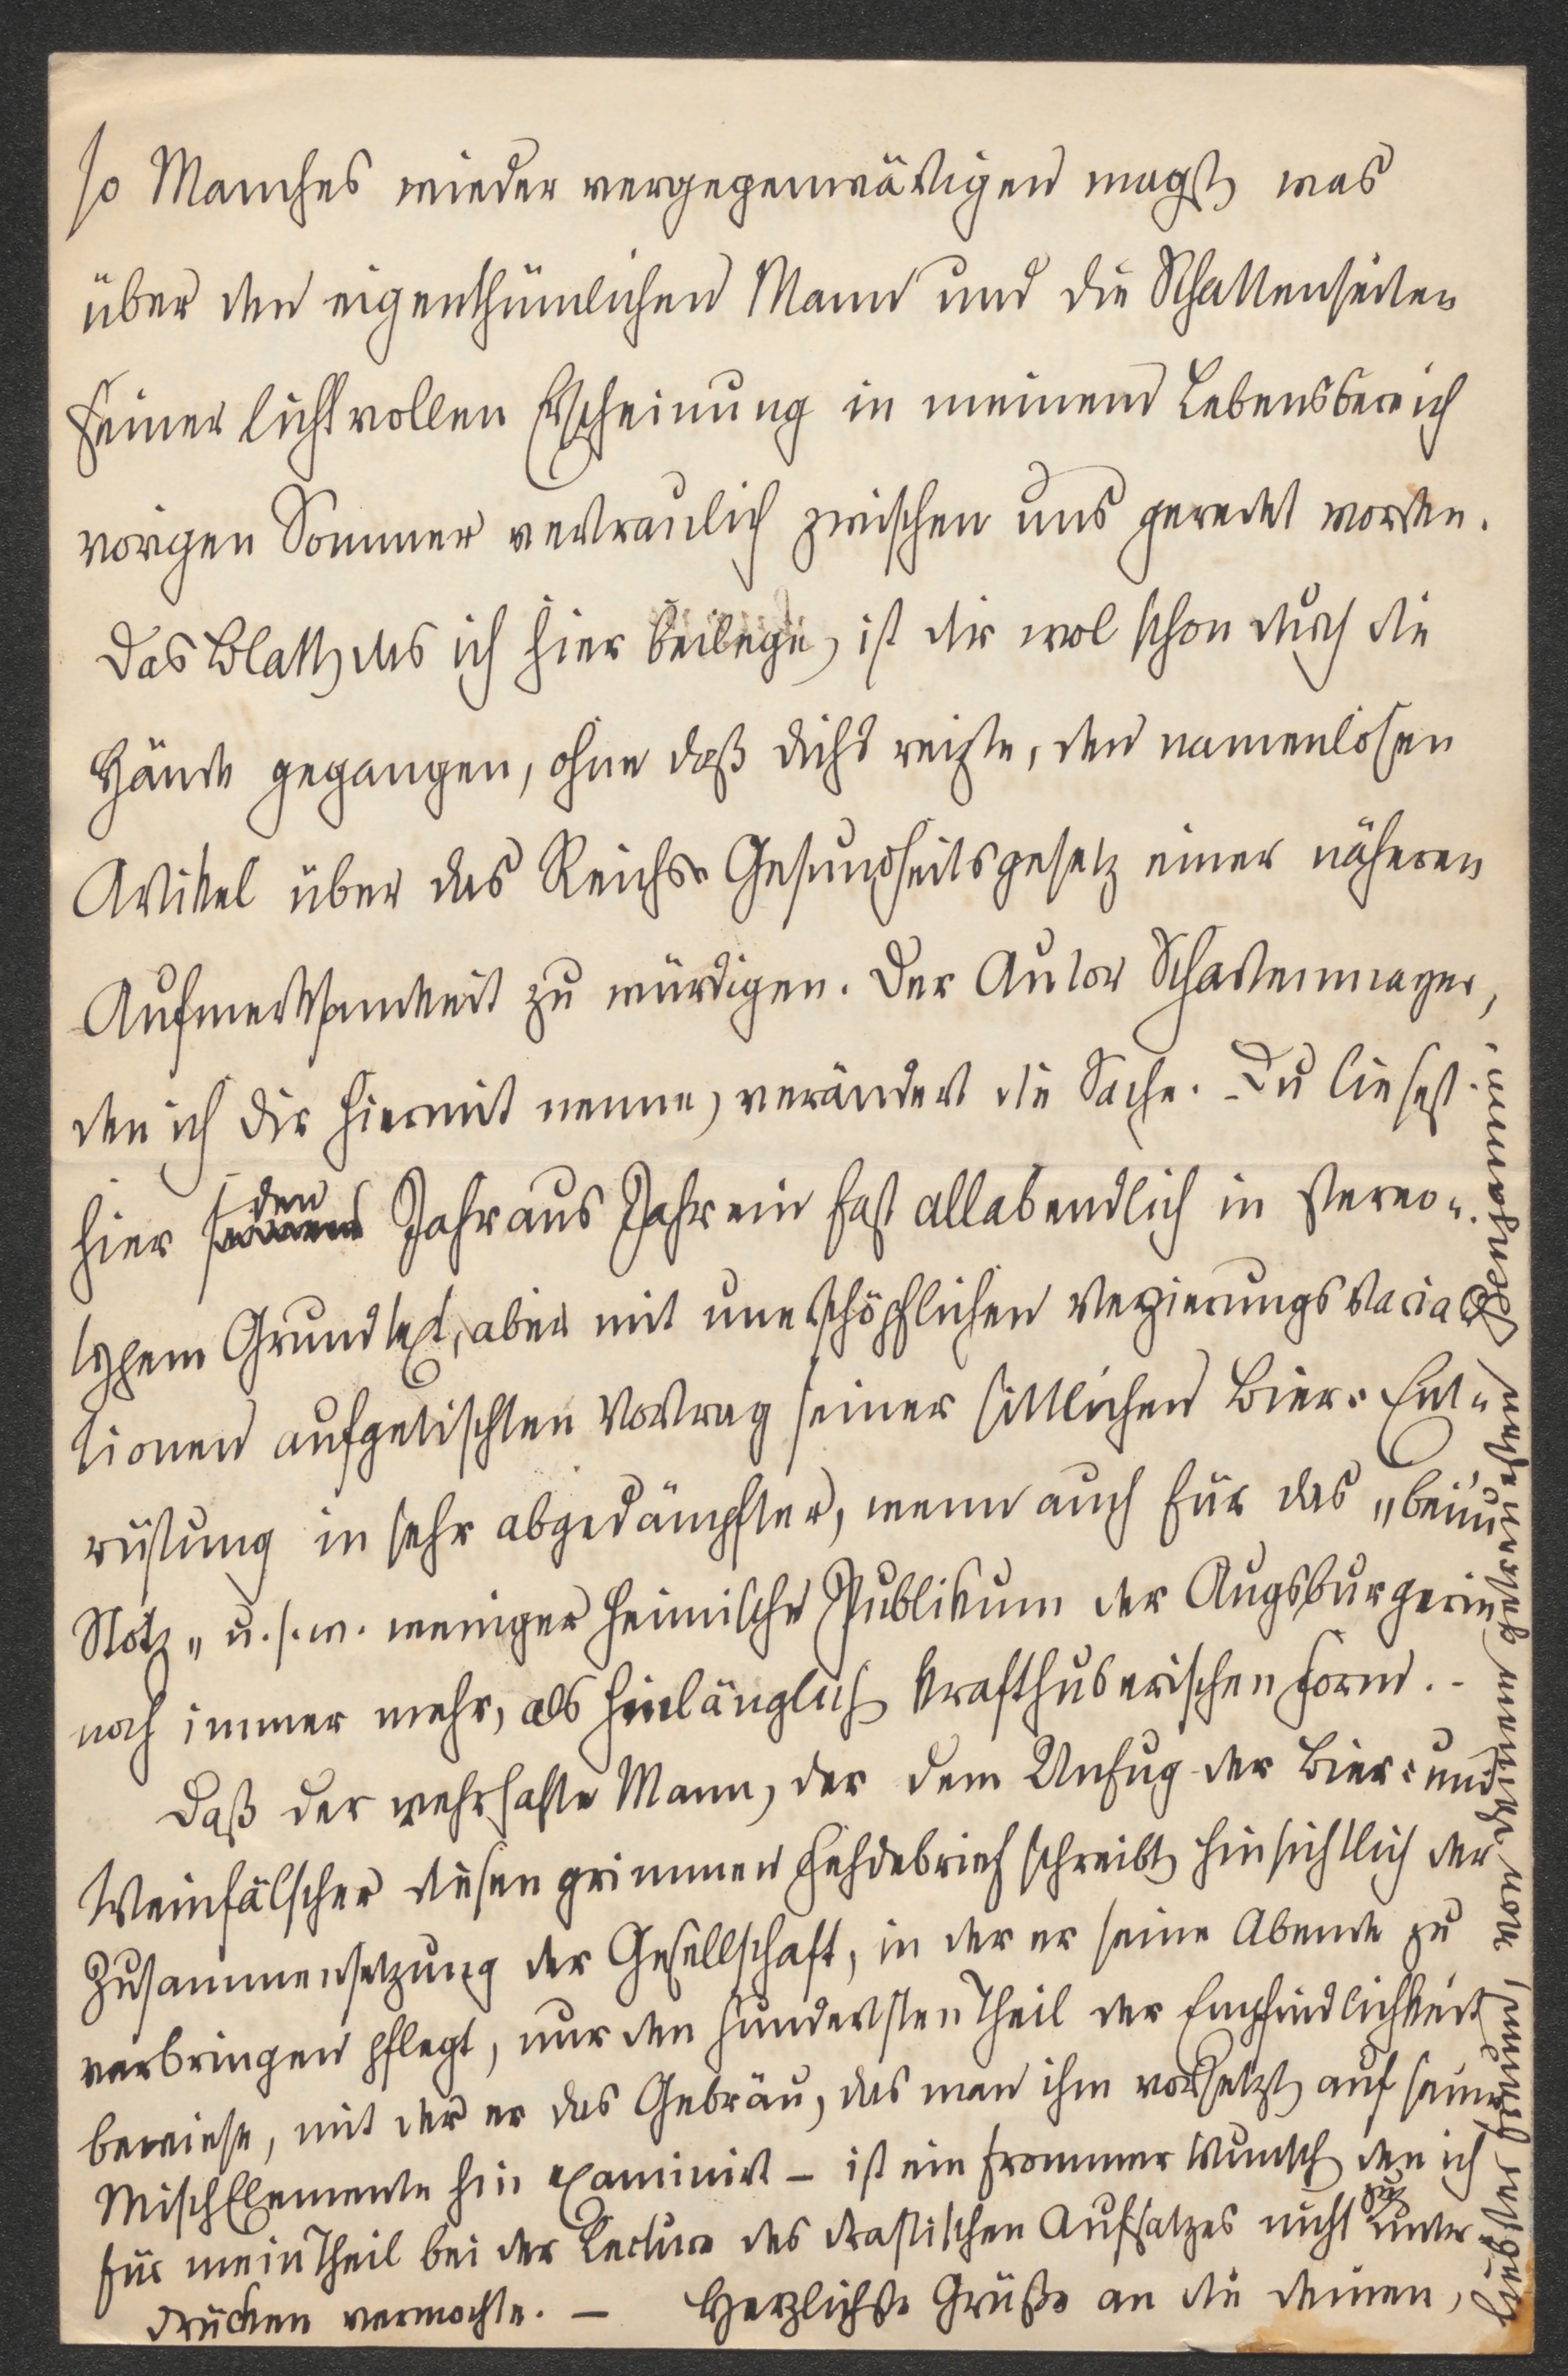 so Manches wieder vergegenwärtigen magst, was
über den eigenthümlichen Mann und die Schattenseiten
seiner lichtvollen Erscheinung in meinem Lebensbereich
vorigen Sommer vertraulich zwischen uns geredet worden.
Das Blatt, das ich hier beilege, ist dir wol schon durch die
Hände gegangen, ohne daß dichs reizte, den namenlosen
Artikel über das Reichs-Gesundheitsgesetz einer näheren
Aufmerksamkeit zu würdigen. Der Autor Schartenmayer,
den ich dir hiermit nenne, verändert die Sache. - Du liesest
hier den Jahr aus Jahr ein fast allabendlich in stereo-
typem Grundtext, aber mit unerschöpflichen Verzierungsvaria-
tionen aufgetischten Vortrag seiner sittlichen Bier-Ent-
rüstung in sehr abgedämpfter, wenn auch für das "beim
Stotz" u.s.w. weniger heimische Publikum der Augsburgerin
noch immer mehr, als hinlänglich krafthuberischen Form. -
Daß der wehrhafte Mann, der dem Unfug der Bier- und
Weinfälscher diesen grimmen Fehdebrief schreibt, hinsichtlich der
Zusammensetzung der Gesellschaft, in der er seine Abende zu
verbringen pflegt, nur den hundertsten Theil der Empfindlichkeit
bewiese, mit der er das Gebräu, das man ihm vorsetzt, auf seine
MischElemente hin examinirt – ist ein frommer Wunsch, den ich
für mein Theil bei der Lecture des drastischen Aufsatzes nicht zu unter
drücken vermochte. — Herzlichste Grüße an die deinen,
liebster Freund, von deinem getreuesten